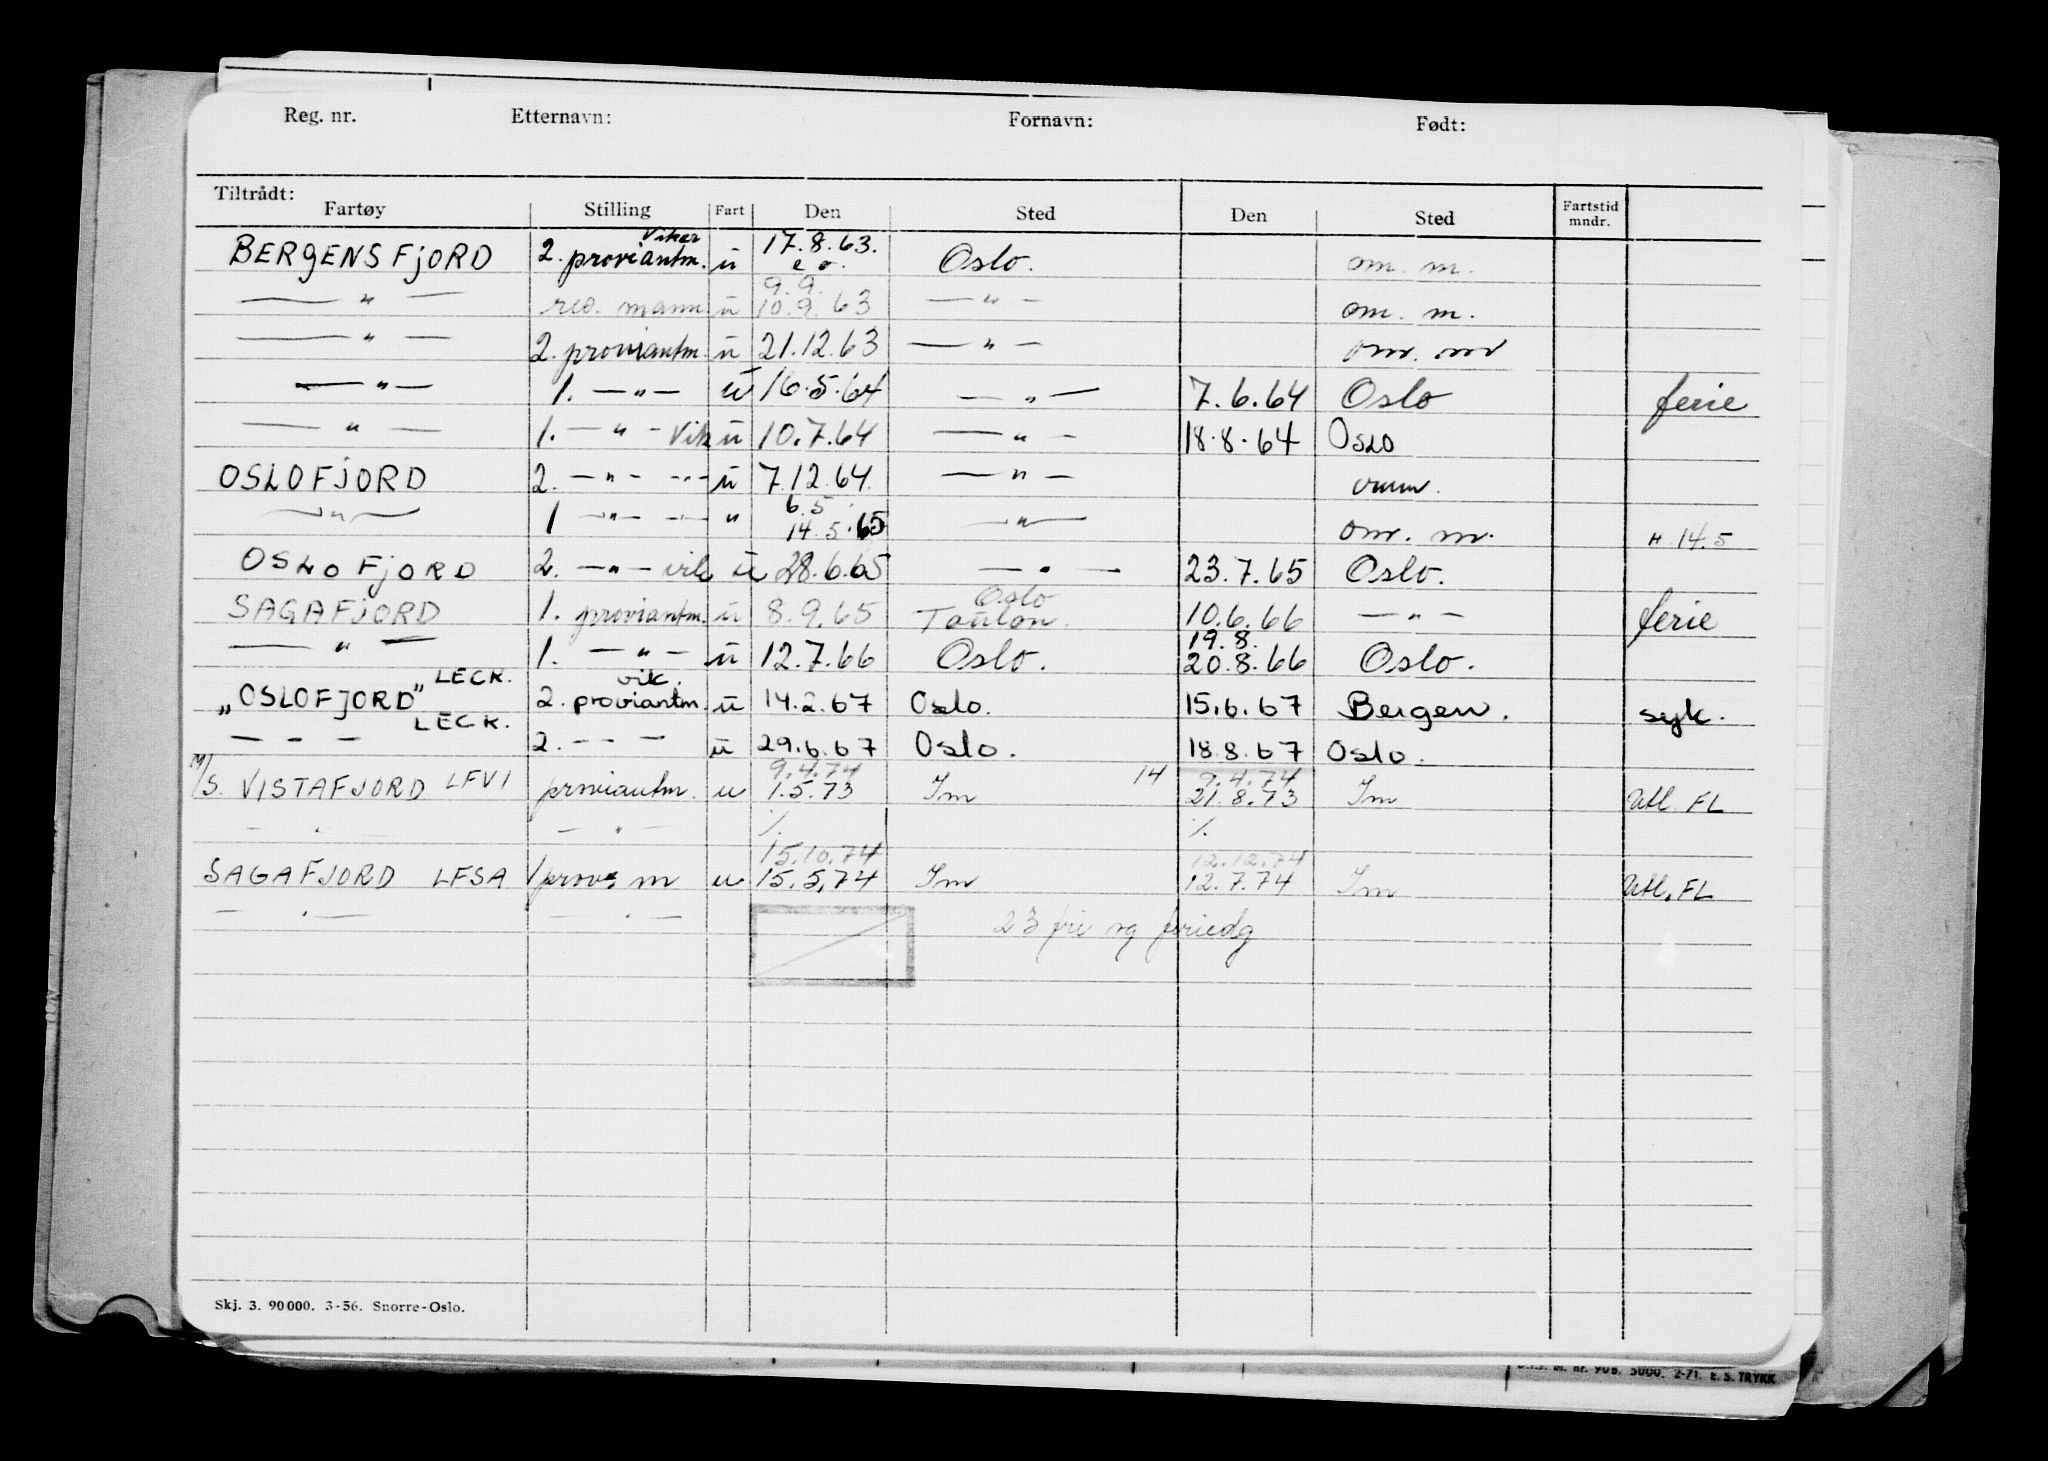 Reg. nr. Etternavn: Fornavn: Født:
Tiltrådt:
Fartøy Stilling Fart Den Sted Den Sted Fartstid mndr.
BERGENSFJORD 2. proviantm. Vikar ü 17.8.63. e.o. Oslo. om. m.
— " — res. mann ü 9.9. 10.9.63 — " — om. m.
— " — 2. proviantm. ü 21.12.63 — " — om. m
— " — 1. — " — ü 16.5.64 — " — 7.6.64 Oslo ferie
— " — 1. — " — Vik ü 10.7.64 — " — 18.8.64 Oslo
OSLOFJORD 2. — " — — " — ü 7.12.64. — " —
— " — 1 — " — — " — " 6.5 14.5.65 — " — om. m. H 14.5
OSLOFJORD 2. — " — vik ü 28.6.65 — " — 23.7.65 Oslo.
SAGAFJORD 1. proviantm. ü 8.9.65 Oslo Toulon. 10.6.66 — " — ferie
— " — 1. — " — ü 12.7.66 Oslo. 19.8. 20.8.66 Oslo.
„OSLOFJORD" LECK. 2. proviantm. vik. ü 14.2.67 Oslo. 15.6.67 Bergen. syk.
— — — LECK. 2. — — — ü 29.6.67 Oslo. 18.8.67 Oslo.
M/S. VISTAFJORD LFVI proviantm. u 9.4.74 1.5.73 Im 14 9.4.74 21.8.73 Im Utl. FL
— " — — " — %. %.
SAGAFJORD LFSA 1 prov. m u 15.10.74 15.5.74 Im 12.12.74 12.7.74 Im Utl. FL
— " — — " — 23 fri og feriedg
Skj. 3. 90000. 3-56. Snorre-Oslo.
D.I.S. M. nr. 908. 5000. 2-71. E. S. TRYKK